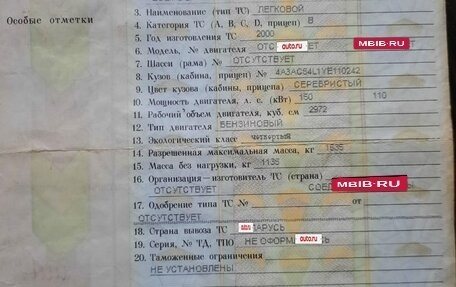 3. Наименование (тип ТС) ЛЕГКОВОЙ
Особые отметки
4. Категория ТС (A, B, C, D, прицеп) B
5. Год изготовления ТС 2000
6. Модель, № двигателя ОТС auto.ru ЕТ MBIB.RU
7. Шасси (рама) № ОТСУТСТВУЕТ
8. Кузов (кабина, прицеп) № 4A3AC54L1YE110242
9. Цвет кузова (кабины, прицепа) СЕРЕБРИСТЫЙ
10. Мощность двигателя, л. с. (кВт) 150 110
11. Рабочий объем двигателя, куб. см 2972
12. Тип двигателя БЕНЗИНОВЫЙ
13. Экологический класс ЧЕТВЕРТЫЙ
14. Разрешенная максимальная масса, кг 1635
15. Масса без нагрузки, кг 1136
16. Организация—изготовитель ТС (страна) MBIB.RU
ОТСУТСТВУЕТ СОЕД
17. Одобрение типа ТС № от
ОТСУТСТВУЕТ
18. Страна вывоза ТС АРУСЬ
19. Серия, № ТД, ТПО НЕ ОФОРМ auto.ru СЬ
20. Таможенные ограничения
НЕ УСТАНОВЛЕНЫ